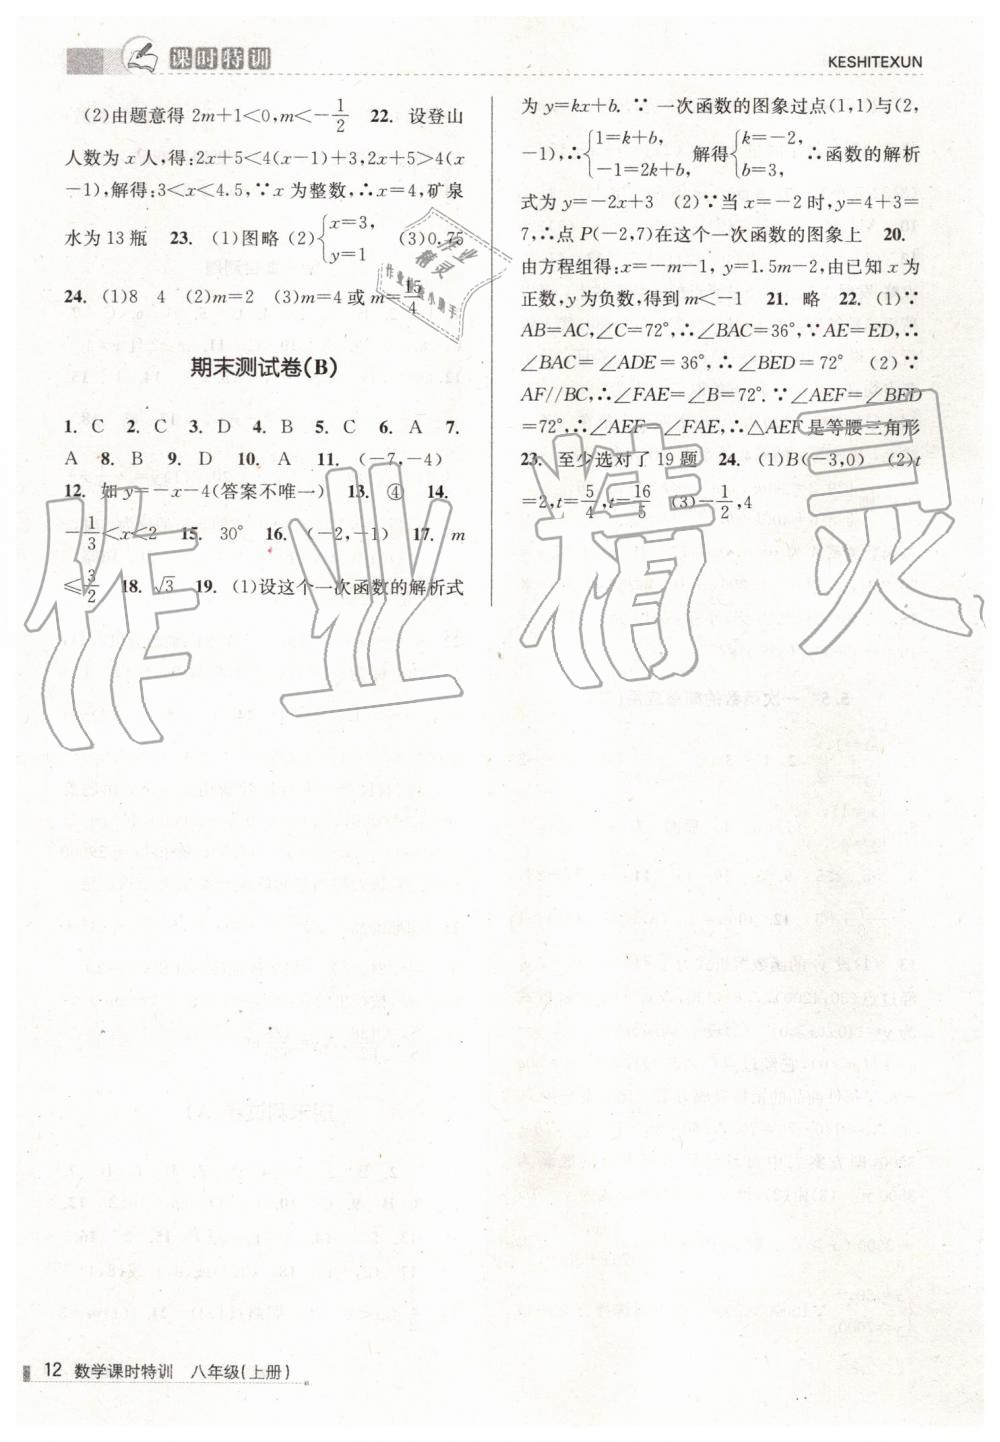 课时特训
KESHITEXUN
(2)由题意得 2m+1<0,m<-1/2 22. 设登山
人数为 x 人,得:2x+5<4(x-1)+3,2x+5>4(x
-1),解得:3<x<4.5,∵x 为整数,∴x=4,矿泉
水为 13 瓶 23. (1)图略 (2){x=3, y=1 (3)0.75
24. (1)8 4 (2)m=2 (3)m=4 或 m=15/4
期末测试卷(B)
1. C 2. C 3. D 4. B 5. C 6. A 7.
A 8. B 9. D 10. A 11. (-7,-4)
12. 如 y=-x-4(答案不唯一) 13. ④ 14.
-1/3<x<2 15. 30° 16. (-2,-1) 17. m
≤3/2 18. √3 19. (1)设这个一次函数的解析式
为 y=kx+b. ∵ 一次函数的图象过点(1,1)与(2,
-1),∴{1=k+b, -1=2k+b, 解得{k=-2, b=3, ∴函数的解析
式为 y=-2x+3 (2)∵当 x=-2 时,y=4+3=
7,∴点 P(-2,7)在这个一次函数的图象上 20.
由方程组得:x=-m-1,y=1.5m-2,由已知 x 为
正数,y 为负数,得到 m<-1 21. 略 22. (1)∵
AB=AC,∠C=72°,∴∠BAC=36°,∵AE=ED,∴
∠BAC=∠ADE=36°,∴∠BED=72° (2)∵
AF//BC,∴∠FAE=∠B=72°.∵∠AEF=∠BED
=72°,∴∠AEF=∠FAE,∴△AEF是等腰三角形
23. 至少选对了 19 题 24. (1)B(-3,0) (2)t
=2,t=5/4,t=16/5 (3)-1/2,4
作业精灵
作业
精灵
12 数学课时特训 八年级(上册)